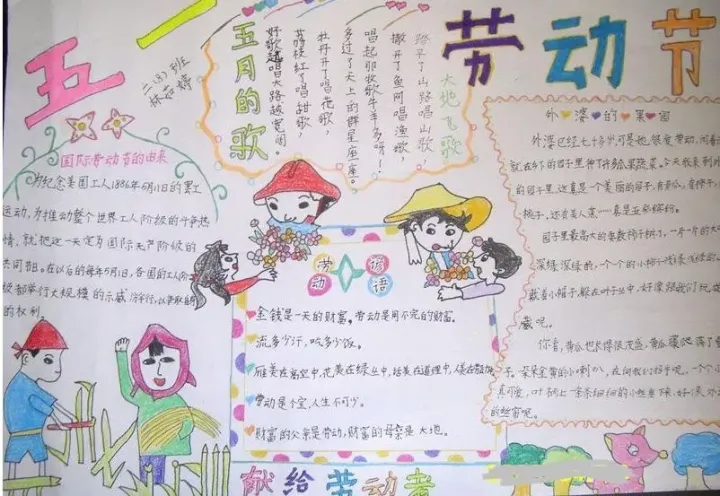 五一
劳动节
二(3)班
林茹婷
国际劳动节的由来
为纪念美国工人1886年5月1日的罢工
运动,为推动整个世界工人阶级的斗争热
情,就把这一天定为国际无产阶级的
共同节日。在以后的每年5月1日,各国的工人阶
级都举行大规模的示威游行,以争取自己
的权利。
五月的歌
大地飞歌
踏平了山路唱山歌,
撒开了鱼网唱渔歌,
唱起那牧歌牛羊多呀!
多过了天上的群星座座。
牡丹开了唱花歌,
荔枝红了唱甜歌,
好歌越唱大路越宽阔。
劳动谚语
金钱是一天的财富,劳动是用不完的财富。
流多少汗,吃多少饭。
雁美在高空中,花美在绿丛中,话美在道理中,
劳动是个宝,人生不可少。
财富的父亲是劳动,财富的母亲是大地。
献给劳动者
外婆的果园
外婆已经七十多岁,可是她很爱劳动,
就在乡下的园子里种了许多瓜果蔬菜。今天我来到
的园子里,这真是一个美丽的园子,有黄瓜,有柿子,
桃子,还有美人蕉……真是五彩缤纷。
园子里最高大的要数柿子树了,一片一片的
深绿,深绿的,一个个的小柿子浅绿浅绿的,
戴着小帽子,躲在叶子丛中,好像跟我们玩
藏呢。
你看,黄瓜也长得很茂盛,黄瓜藤爬满了
朵朵金黄的小喇叭,在向我们招手呢,一个个
真可爱,